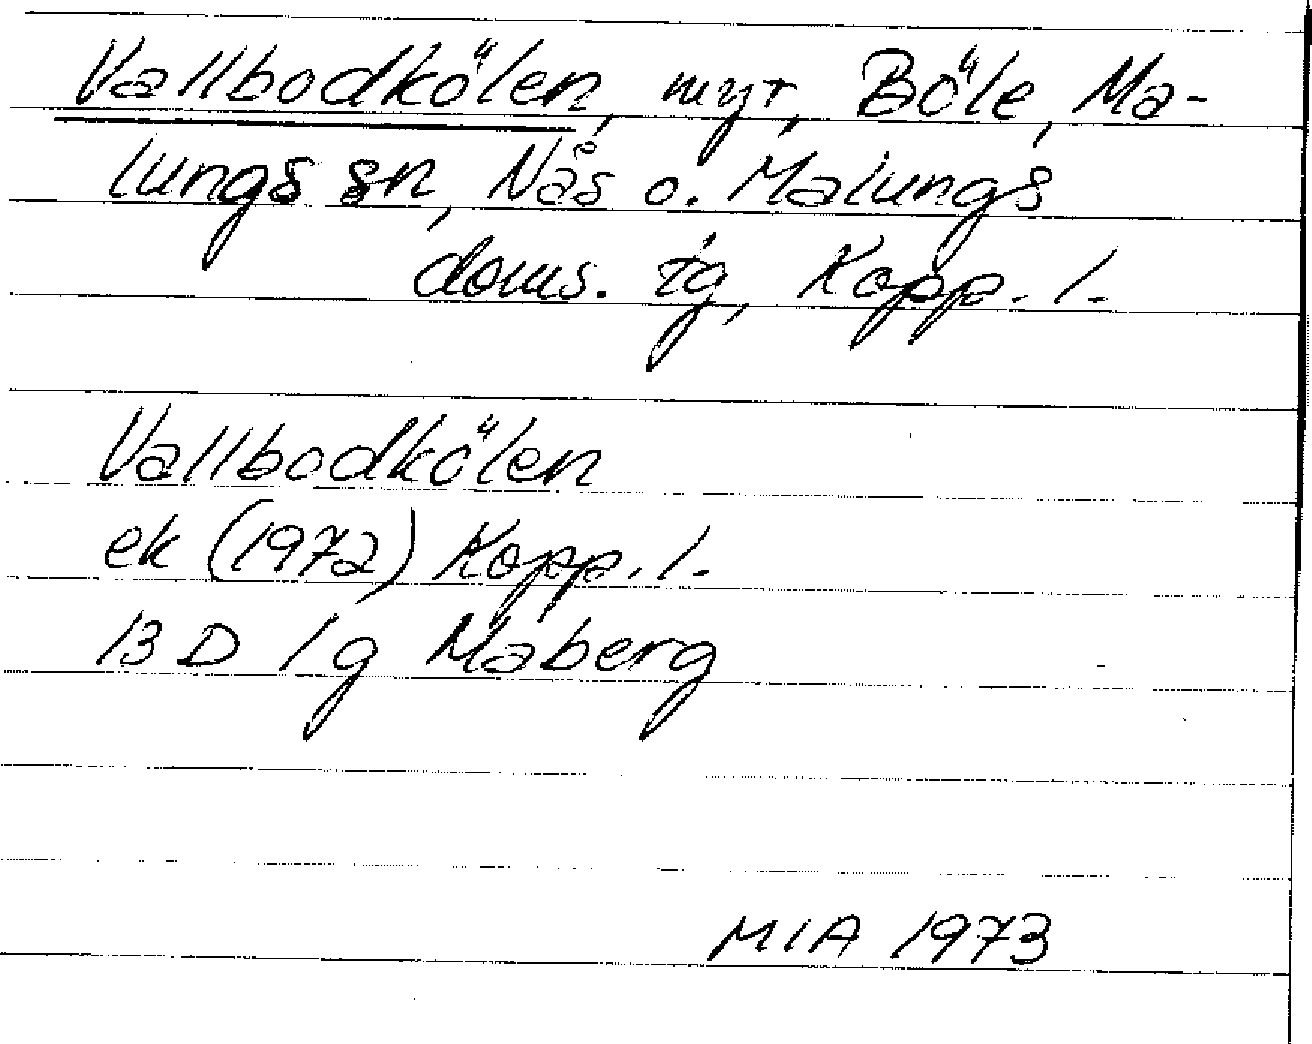 Vallbodkölen, myr, Böle, Ma-
lungs sn, Nås o. Malungs
doms. tg, Kopp. l.
Vallbodkölen
ek (1972) Kopp. l.
13 D 1 g Maberg
MIA 1973